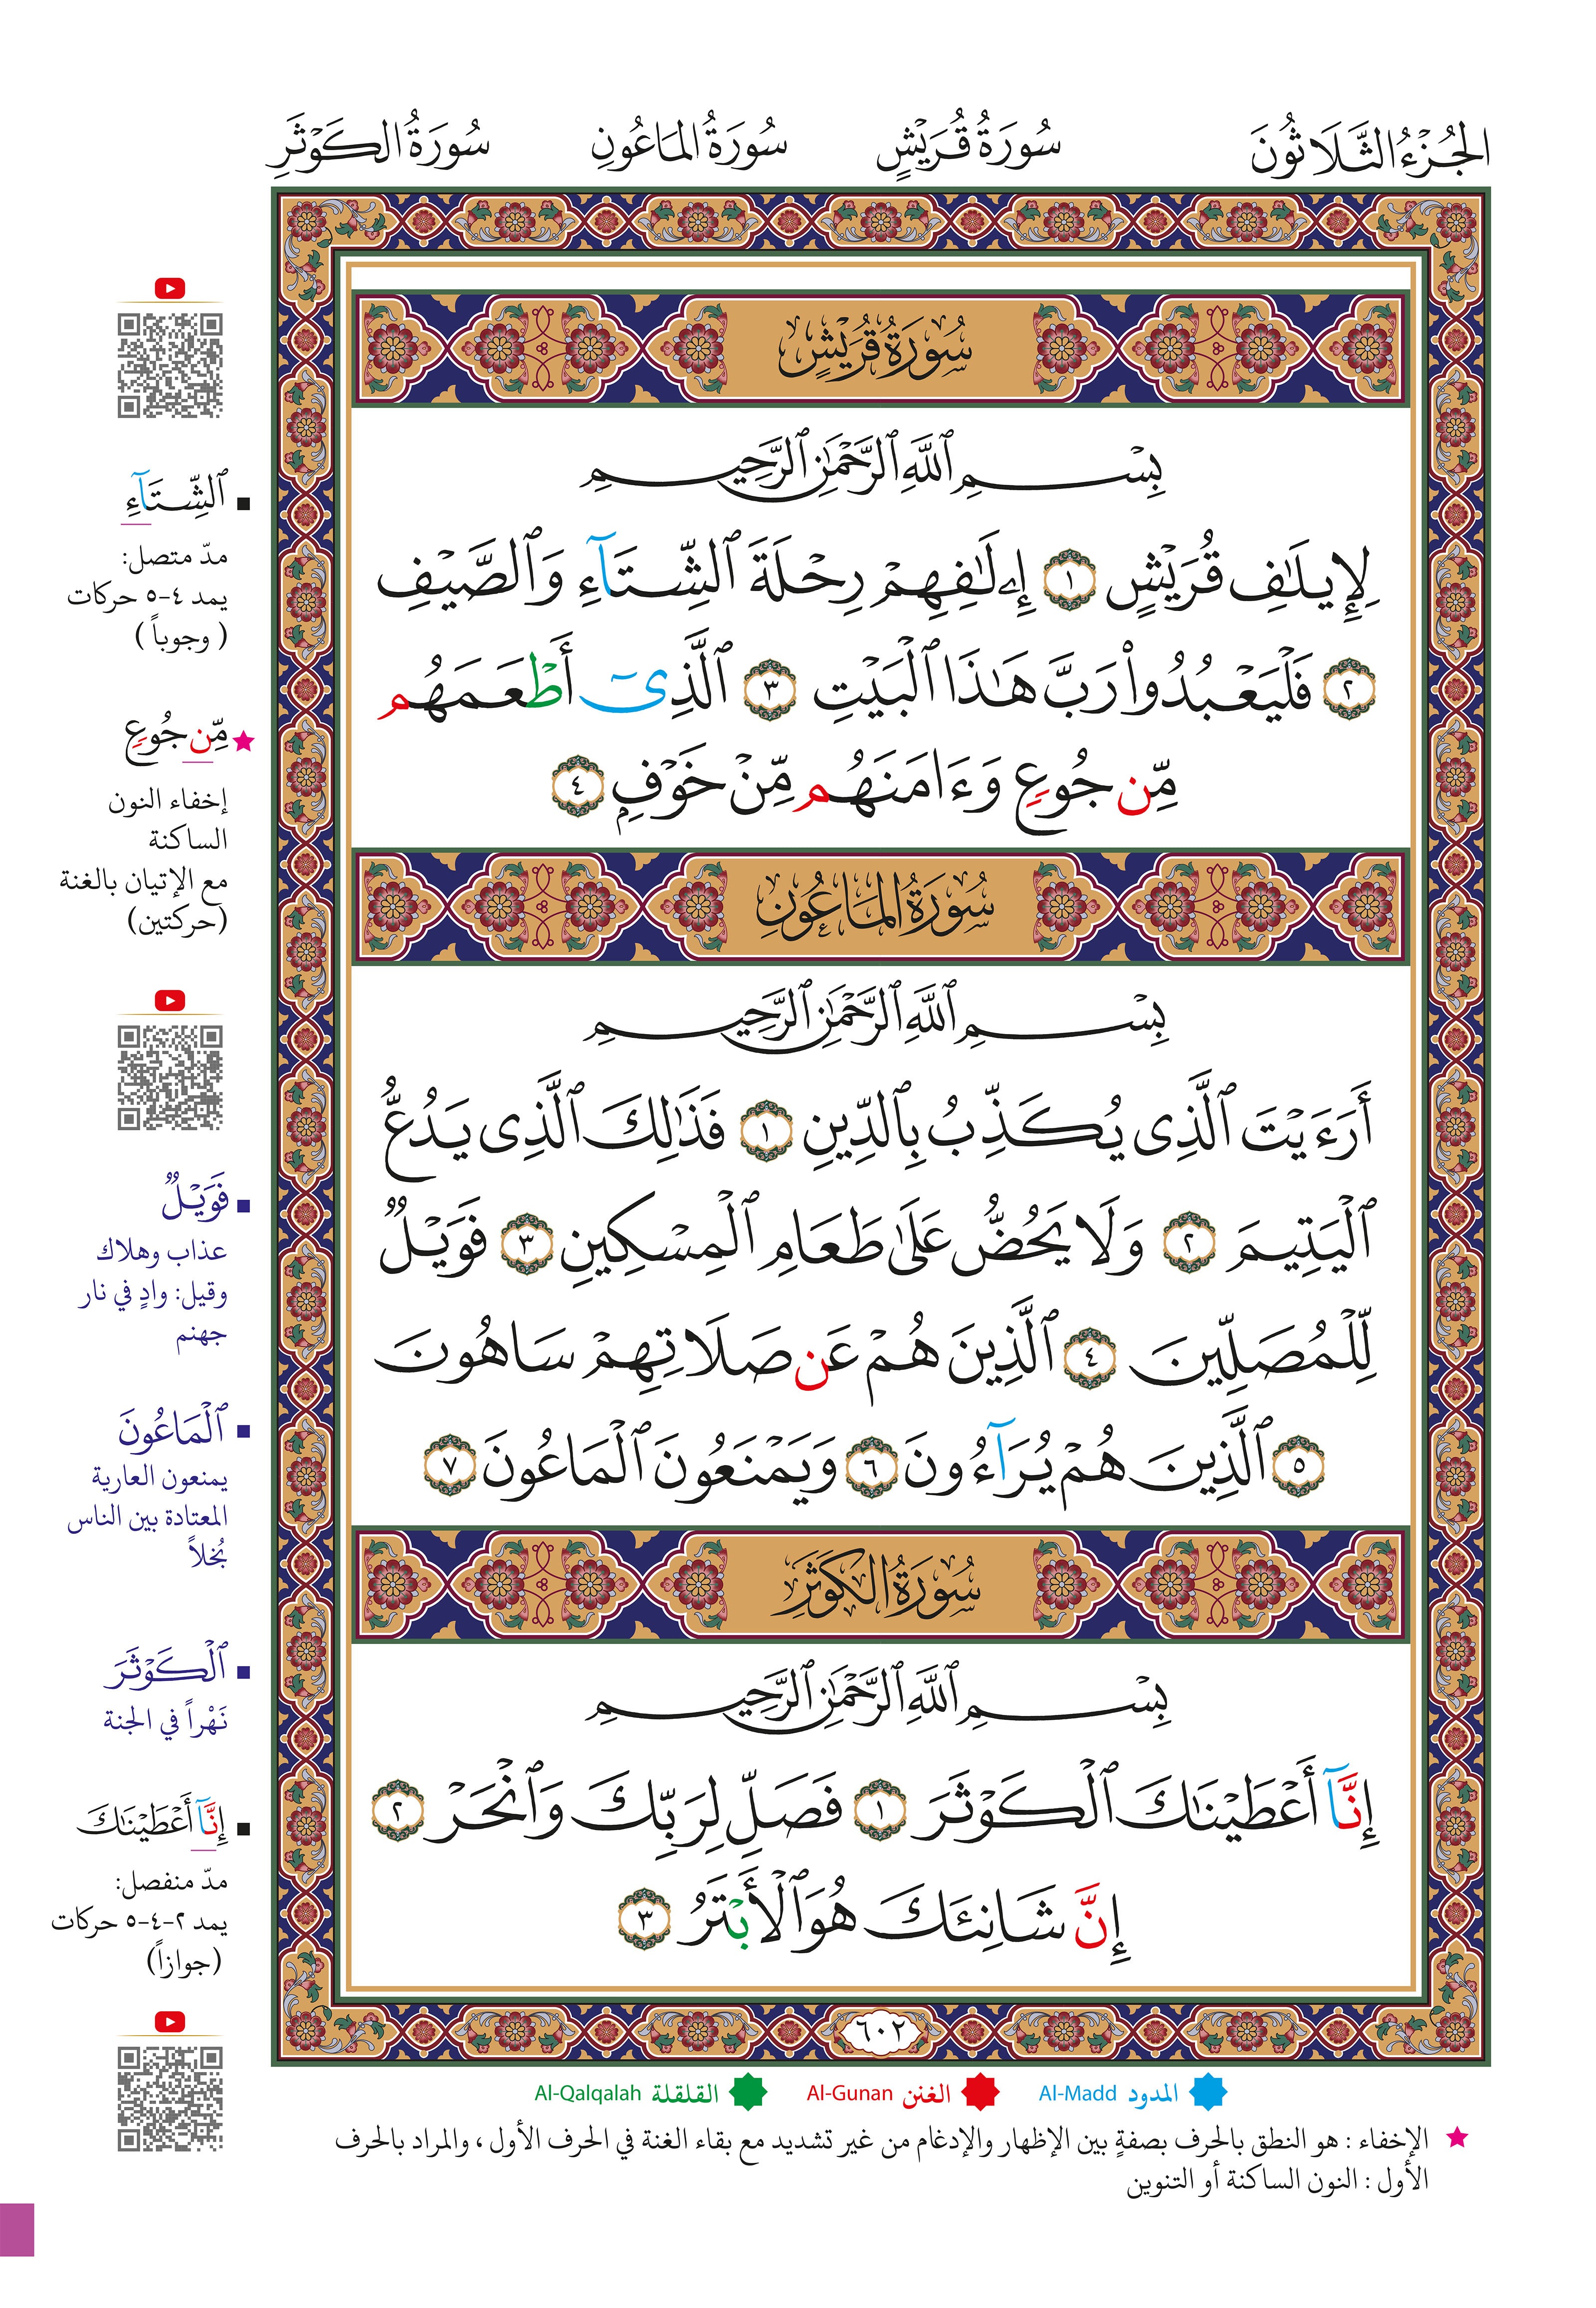 الجُزْءُ الثَّلَاثُونَ سُورَةُ قُرَيْشٍ سُورَةُ المَاعُونِ سُورَةُ الكَوْثَرِ
سُورَةُ قُرَيْشٍ
بِسْمِ ٱللَّهِ ٱلرَّحْمَٰنِ ٱلرَّحِيمِ
لِإِيلَٰفِ قُرَيْشٍ ١ إِۦلَٰفِهِمْ رِحْلَةَ ٱلشِّتَآءِ وَٱلصَّيْفِ
٢ فَلْيَعْبُدُوا۟ رَبَّ هَٰذَا ٱلْبَيْتِ ٣ ٱلَّذِىٓ أَطْعَمَهُم
مِّن جُوعٍ وَءَامَنَهُم مِّنْ خَوْفٍۭ ٤
سُورَةُ المَاعُونِ
بِسْمِ ٱللَّهِ ٱلرَّحْمَٰنِ ٱلرَّحِيمِ
أَرَءَيْتَ ٱلَّذِى يُكَذِّبُ بِٱلدِّينِ ١ فَذَٰلِكَ ٱلَّذِى يَدُعُّ
ٱلْيَتِيمَ ٢ وَلَا يَحُضُّ عَلَىٰ طَعَامِ ٱلْمِسْكِينِ ٣ فَوَيْلٌ
لِّلْمُصَلِّينَ ٤ ٱلَّذِينَ هُمْ عَن صَلَاتِهِمْ سَاهُونَ
٥ ٱلَّذِينَ هُمْ يُرَآءُونَ ٦ وَيَمْنَعُونَ ٱلْمَاعُونَ ٧
سُورَةُ الكَوْثَرِ
بِسْمِ ٱللَّهِ ٱلرَّحْمَٰنِ ٱلرَّحِيمِ
إِنَّآ أَعْطَيْنَٰكَ ٱلْكَوْثَرَ ١ فَصَلِّ لِرَبِّكَ وَٱنْحَرْ ٢
إِنَّ شَانِئَكَ هُوَ ٱلْأَبْتَرُ ٣
٦٠٢
ٱلشِّتَآءِ
مدّ متصل:
يمد ٤-٥ حركات
( وجوباً )
مِّن جُوعٍ
إخفاء النون
الساكنة
مع الإتيان بالغنة
(حركتين)
فَوَيْلٌ
عذاب وهلاك
وقيل: وادٍ في نار
جهنم
ٱلْمَاعُونَ
يمنعون العارية
المعتادة بين الناس
بُخلاً
ٱلْكَوْثَرَ
نَهْراً في الجنة
إِنَّآ أَعْطَيْنَٰكَ
مدّ منفصل:
يمد ٢-٤-٥ حركات
(جوازاً)
المدود Al-Madd الغنن Al-Gunan القلقلة Al-Qalqalah
الإخفاء : هو النطق بالحرف بصفةٍ بين الإظهار والإدغام من غير تشديد مع بقاء الغنة في الحرف الأول ، والمراد بالحرف
الأول : النون الساكنة أو التنوين